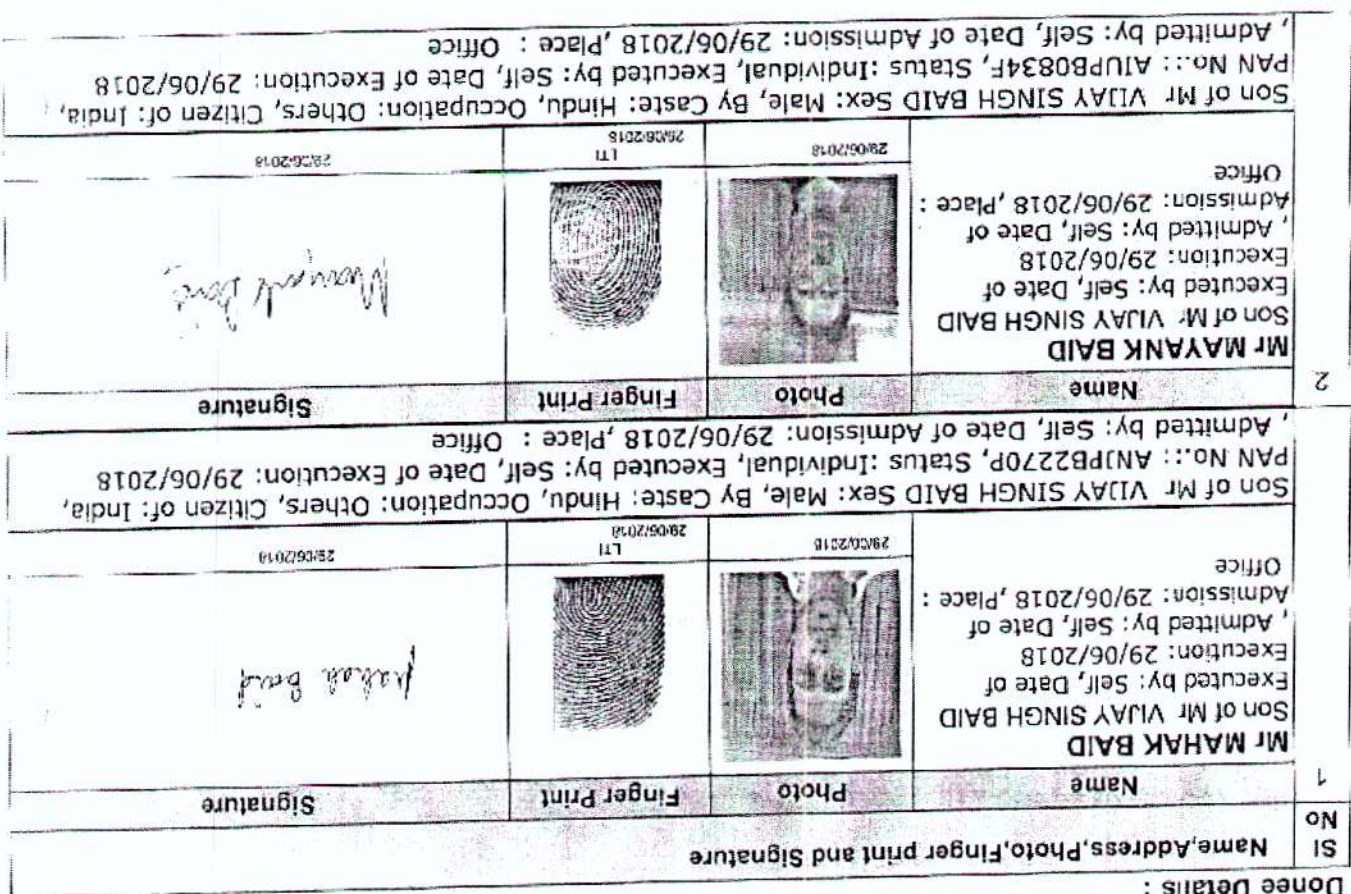 Donee Details :
Sl No
Name,Address,Photo,Finger print and Signature
1
Name Photo Finger Print Signature
Mr MAHAK BAID
Son of Mr VIJAY SINGH BAID
Executed by: Self, Date of
Execution: 29/06/2018
, Admitted by: Self, Date of
Admission: 29/06/2018 ,Place :
Office
Mahak Baid
29/06/2018
LTI
29/06/2018
29/06/2018
Son of Mr VIJAY SINGH BAID Sex: Male, By Caste: Hindu, Occupation: Others, Citizen of: India,
PAN No.:: ANJPB2270P, Status :Individual, Executed by: Self, Date of Execution: 29/06/2018
, Admitted by: Self, Date of Admission: 29/06/2018 ,Place : Office
2
Name Photo Finger Print Signature
Mr MAYANK BAID
Son of Mr VIJAY SINGH BAID
Executed by: Self, Date of
Execution: 29/06/2018
, Admitted by: Self, Date of
Admission: 29/06/2018 ,Place :
Office
Mayank Baid
29/06/2018
LTI
29/06/2018
29/06/2018
Son of Mr VIJAY SINGH BAID Sex: Male, By Caste: Hindu, Occupation: Others, Citizen of: India,
PAN No.:: AIUPB0834F, Status :Individual, Executed by: Self, Date of Execution: 29/06/2018
, Admitted by: Self, Date of Admission: 29/06/2018 ,Place : Office